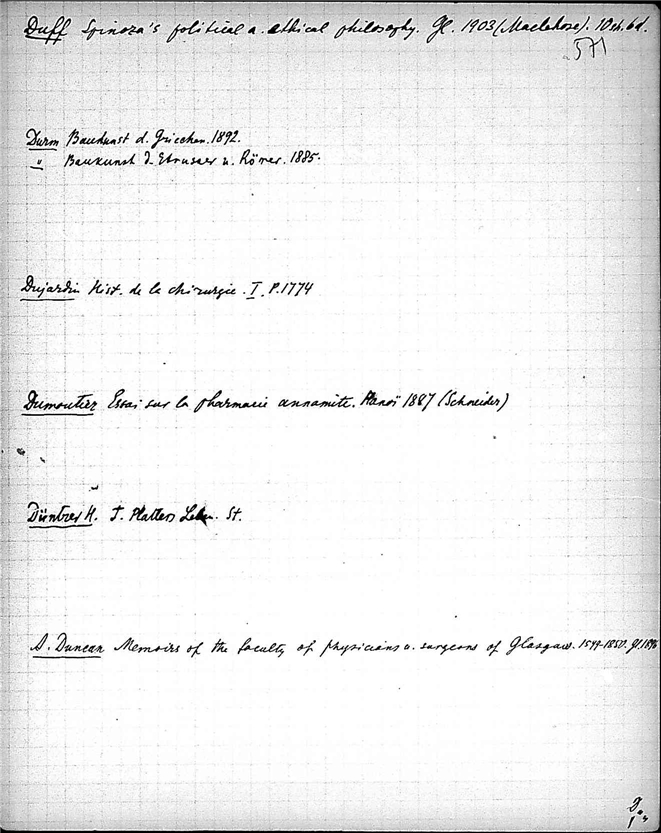 Duff Spinoza's political a. ethical philosophy. Gl. 1903 (Maclehose). 10sh. 6d.
571
Durm Baukunst d. Griechen. 1892.
" Baukunst d. Etrusker u. Römer. 1885.
Dujardin Hist. de la chirurgie. I. P. 1774
Dumoutier Essai sur la pharmacie annamite. Hanoï 1887 (Schneider)
Düntzer H. T. Platters Leben. St.
A. Duncan Memoirs of the faculty of physicians a. surgeons of Glasgow. 1599-1850. Gl. 1896